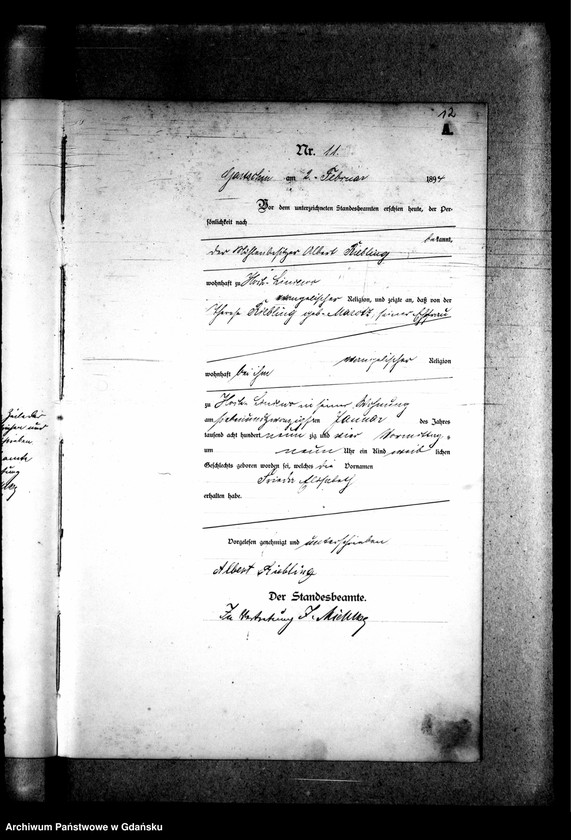 12
A.
Nr. 11.
am 2. Februar 1894
Vor dem unterzeichneten Standesbeamten erschien heute, der Per-
sönlichkeit nach
bekannt,
der Mühlenbesitzer Albert Kiebling
wohnhaft zu
evangelischer Religion, und zeigte an, daß von der
Therese Kiebling geb. seiner Ehefrau
evangelischer Religion
wohnhaft bei ihm
zu in seiner Wohnung
am siebenundzwanzigsten Januar des Jahres
tausend acht hundert neunzig und vier Vormittags
um neun Uhr ein Kind weiblichen
Geschlechts geboren worden sei, welches die Vornamen
Frieda Elisabeth
erhalten habe.
Vorgelesen, genehmigt und unterschrieben
Albert Kiebling
Der Standesbeamte.
In Vertretung
Archiwum Państwowe w Gdańsku